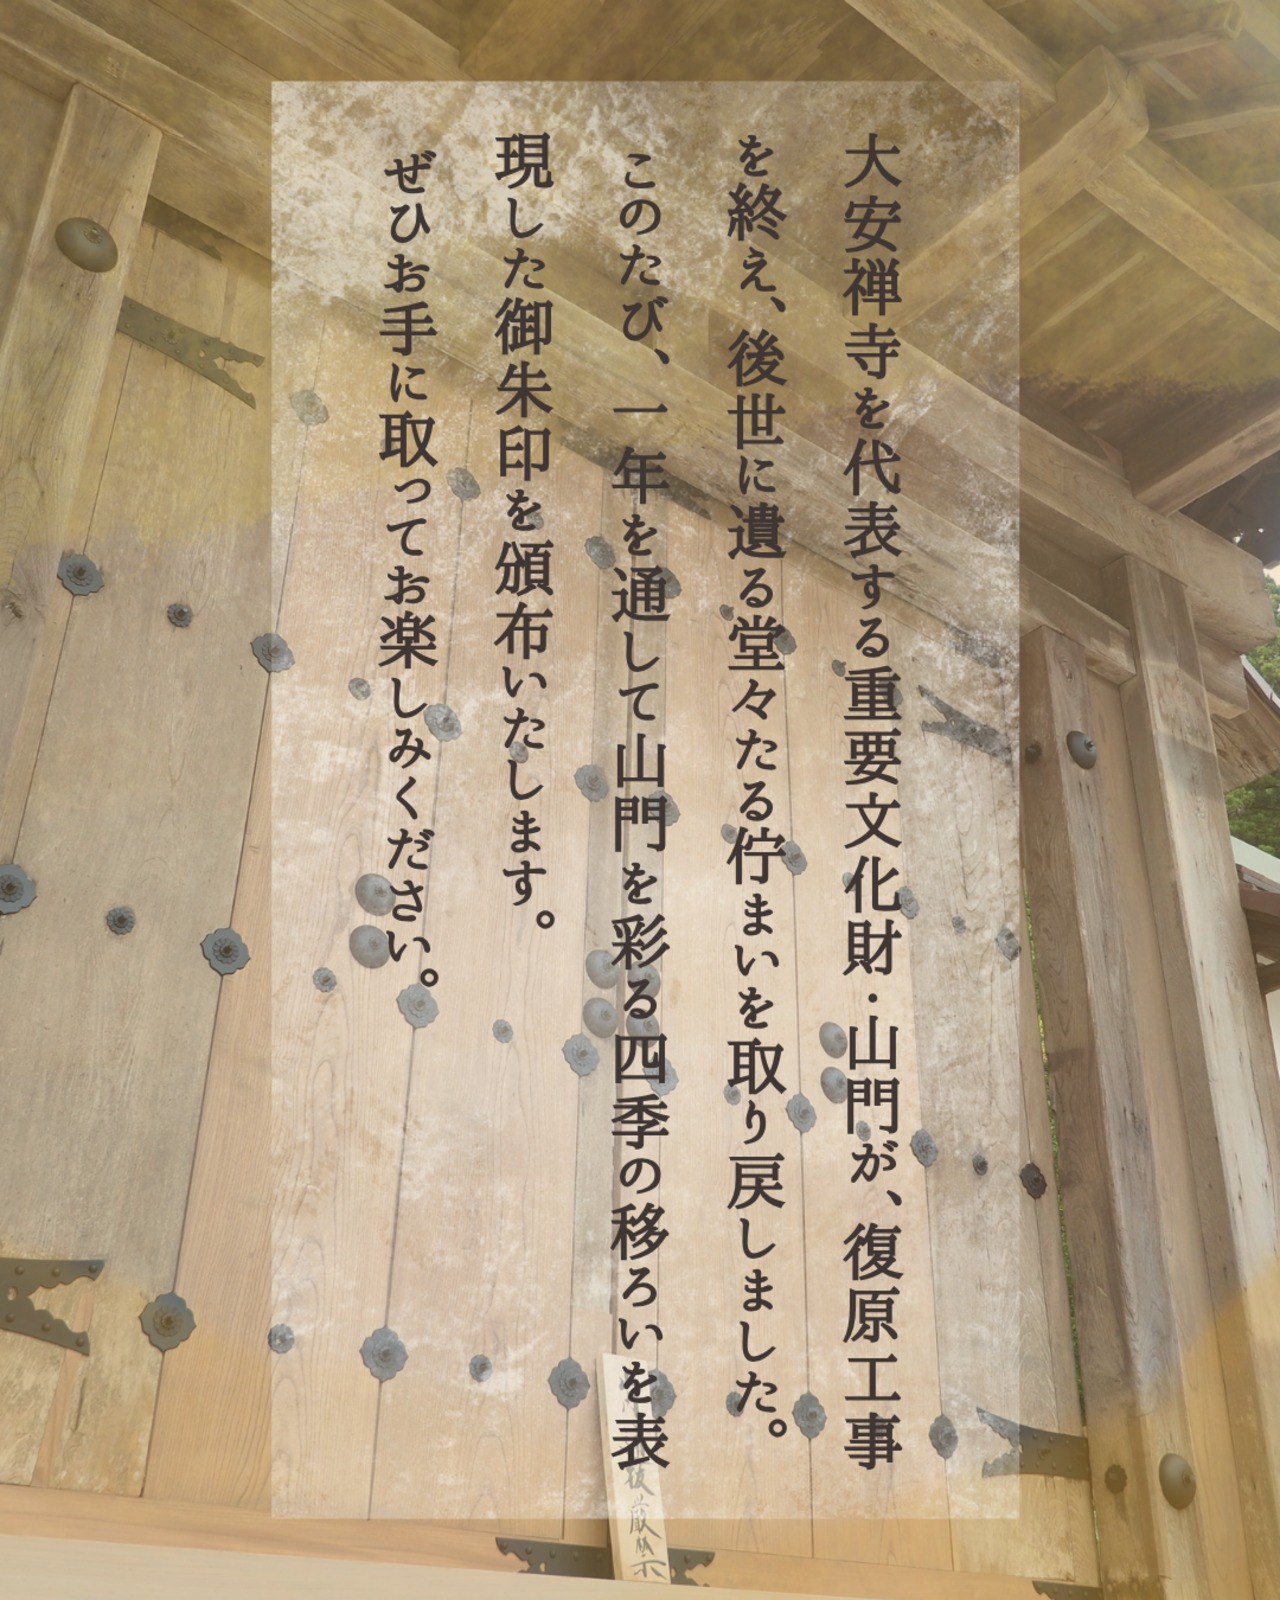 大安禅寺を代表する重要文化財・山門が、復原工事
を終え、後世に遺る堂々たる佇まいを取り戻しました。
このたび、一年を通して山門を彩る四季の移ろいを表
現した御朱印を頒布いたします。
ぜひお手に取ってお楽しみください。